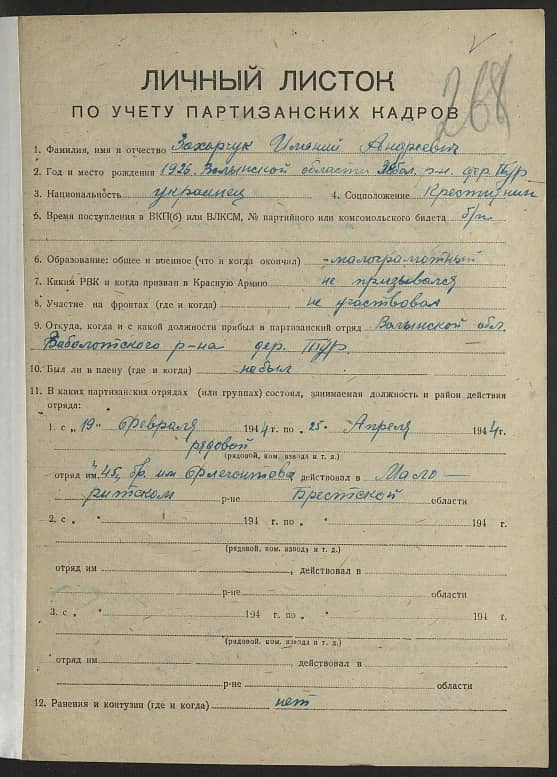 268
ЛИЧНЫЙ ЛИСТОК
ПО УЧЕТУ ПАРТИЗАНСКИХ КАДРОВ
1. Фамилия, имя и отчество Захарчук Андреевич
2. Год и место рождения 1926. Волынской области р-н. дер. Тур
3. Национальность украинец 4. Соцположение Крестянин
6. Время поступления в ВКП(б) или ВЛКСМ, № партийного или комсомольского билета б/п
6. Образование: общее и военное (что и когда окончил) -малограмотный
7. Каким РВК и когда призван в Красную Армию не призывался
8. Участие на фронтах (где и когда) не участвовал
9. Откуда, когда и с какой должности прибыл в партизанский отряд Волынской обл.
Заболотского р-на дер. Тур.
10. Был ли в плену (где и когда) небыл
11. В каких партизанских отрядах (или группах) состоял, занимаемая должность и район действия
отряда:
1. с „19" Февраля 1944 г. по „25" Апреля 1944 г.
рядовой
(рядовой, ком. взвода и т. д.)
отряд им. 45, бр. им Флегонтова действовал в Мало-
ритском р-не Брестской области
2. с „ " 194 г. по „ " 194 г.
(рядовой, ком. взвода и т. д.)
отряд им , действовал в
р-не области
3. с „ " 194 г. по „ " 194 г.
(рядовой, ком. взвода и т. д.)
отряд им , действовал в
р-не области
12. Ранения и контузии (где и когда) нет